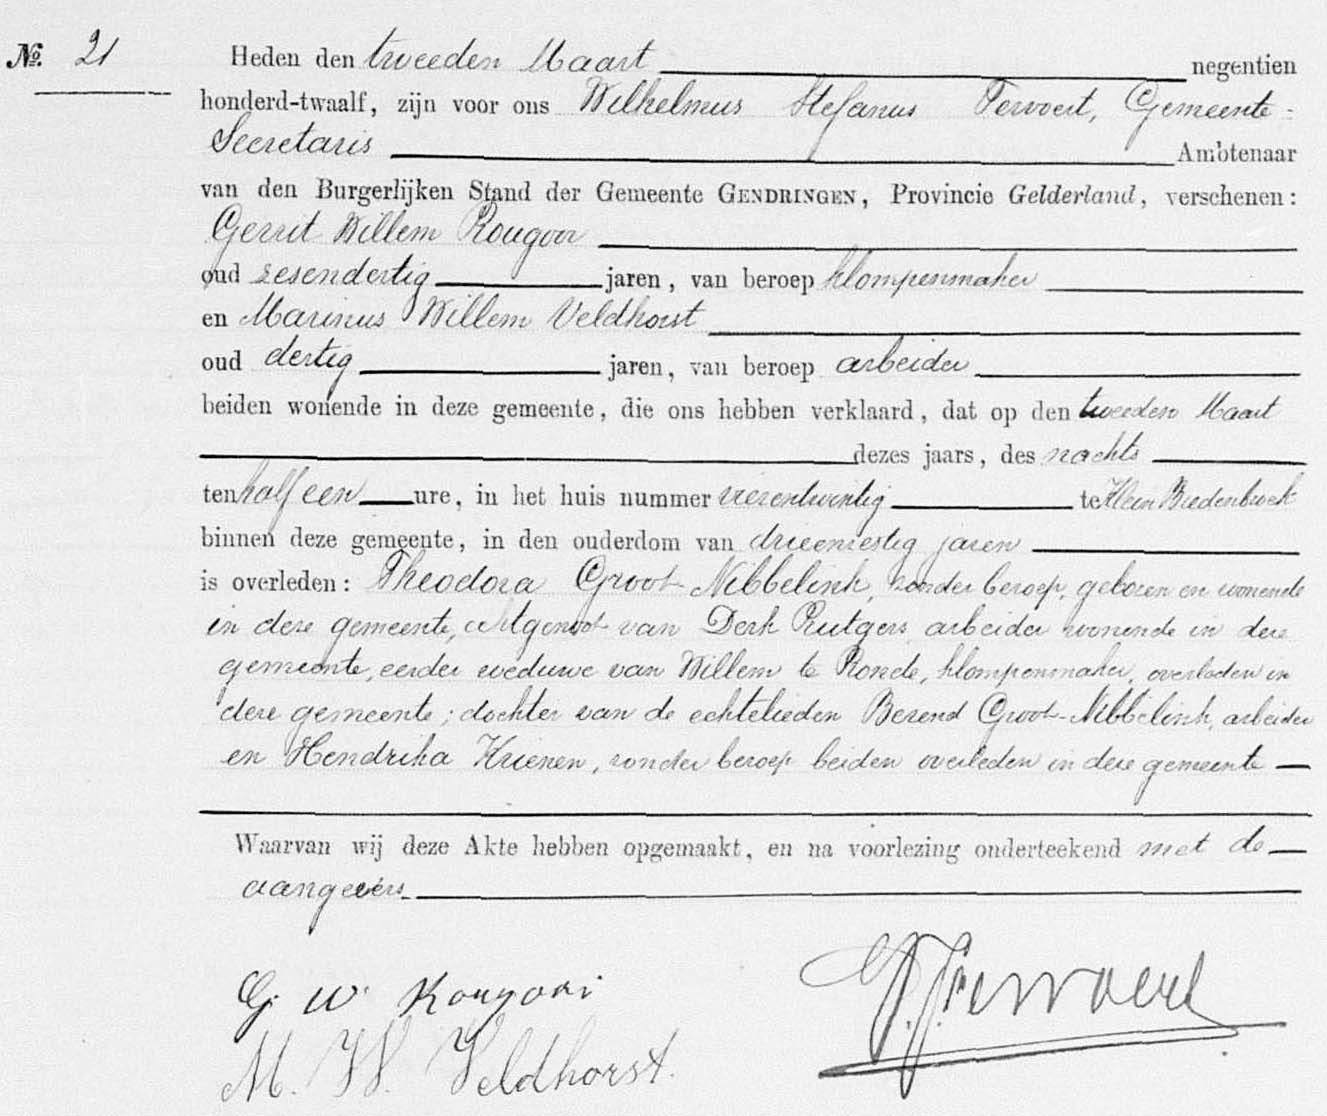 №. 21 Heden den tweeden Maart negentien
honderd-twaalf, zijn voor ons Wilhelmus Stefanus Tervoert, Gemeente-
Secretaris Ambtenaar
van den Burgerlijken Stand der Gemeente GENDRINGEN, Provincie Gelderland, verschenen:
Gerrit Willem Rougoor
oud zesendertig jaren, van beroep klompenmaker
en Marinus Willem Veldhorst
oud dertig jaren, van beroep arbeider
beiden wonende in deze gemeente, die ons hebben verklaard, dat op den tweeden Maart
dezes jaars, des nachts
ten half een ure, in het huis nummer vierentwintig te Klein Bredenbroek
binnen deze gemeente, in den ouderdom van drieenzestig jaren
is overleden: Theodora Groot-Nibbelink, zonder beroep, geboren en wonende
in deze gemeente, echtgenoot van Derk Rutgers arbeider wonende in deze
gemeente, eerder weduwe van Willem te Ronde, klompenmaker, overleden in
deze gemeente; dochter van de echtelieden Berend Groot-Nibbelink, arbeider
en Hendrika Krienen, zonder beroep beiden overleden in deze gemeente
Waarvan wij deze Akte hebben opgemaakt, en na voorlezing onderteekend met de
aangevers.
G. W. Rougoor
M. W. Veldhorst.
Tervoert